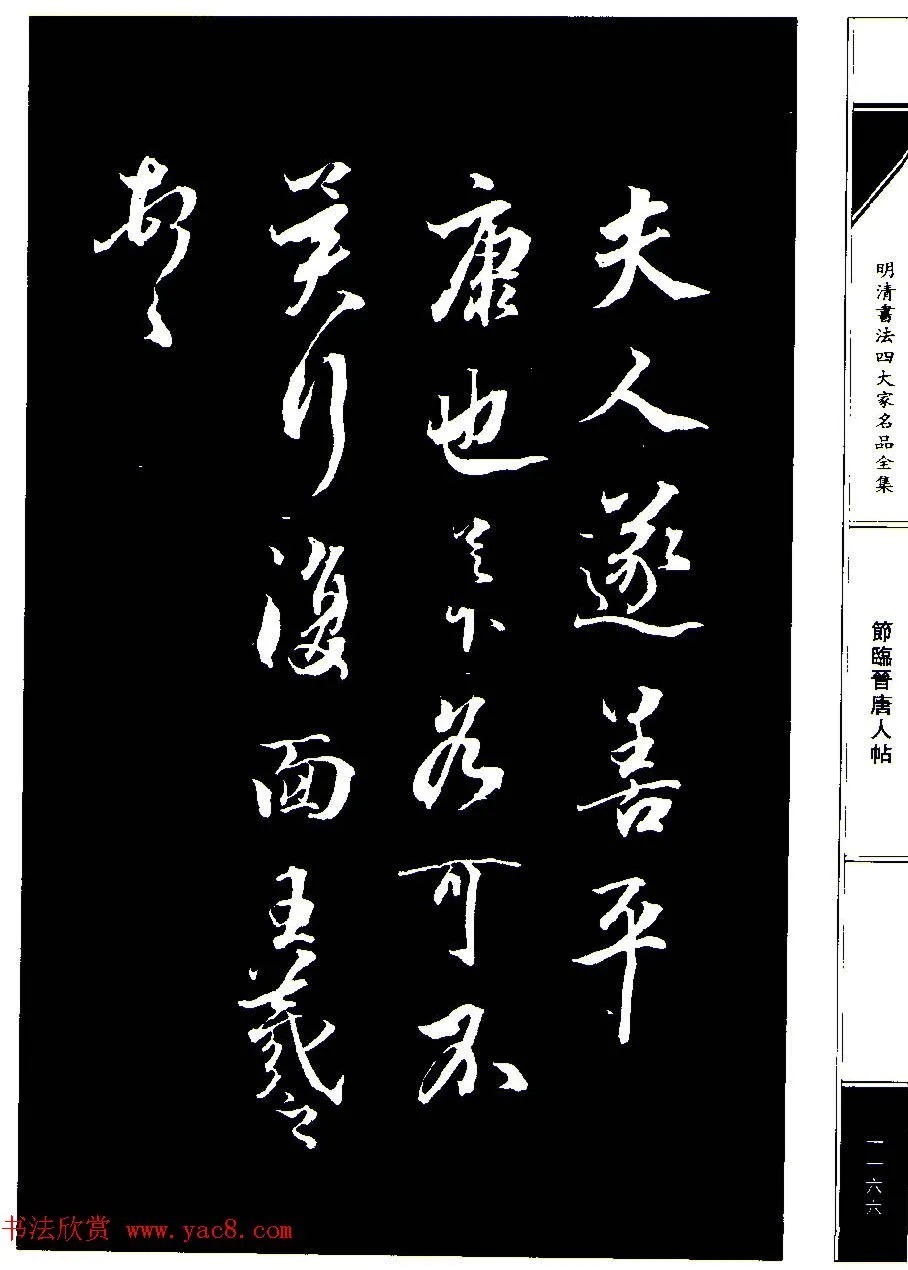 夫人遂善平
康也足下各可不
行復面王羲之
頓首
明清書法四大家名品全集
節臨晉唐人帖
一一六六
书法欣赏 www.yac8.com